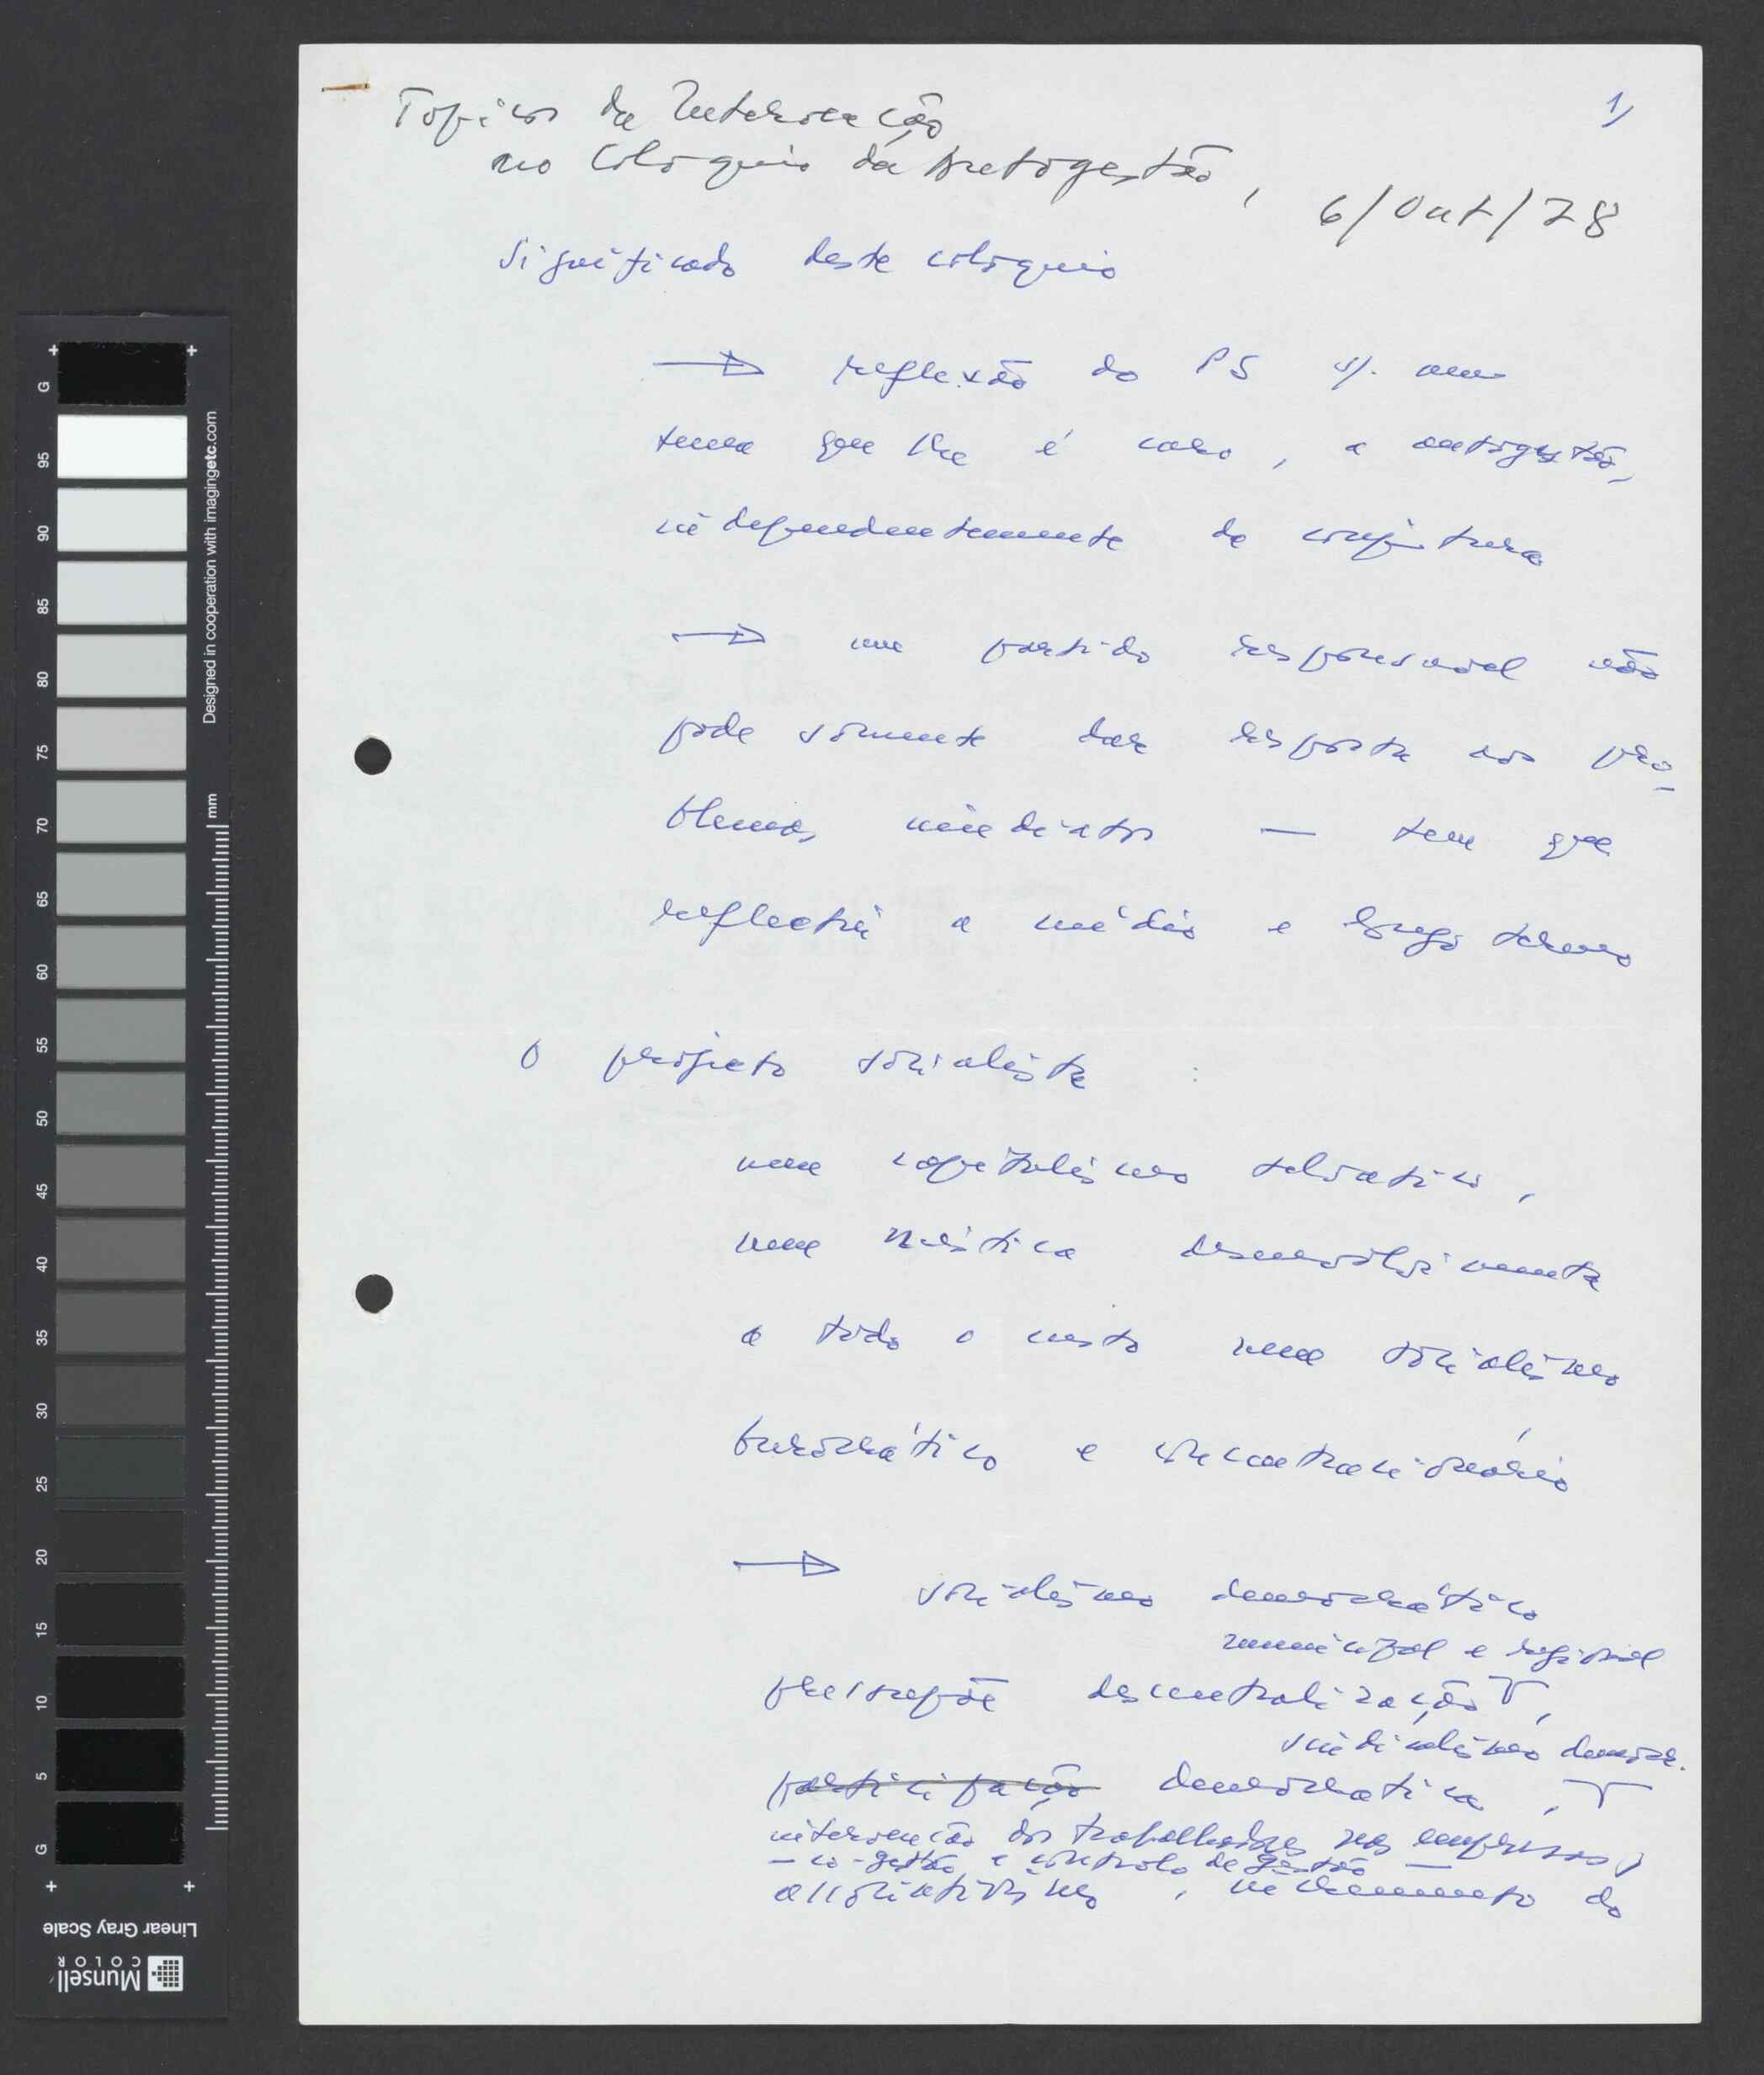 Topicos da Intervenção
1)
no Coloquio da Autogestão,
6/Out/78
Significado deste coloquio
→ reflexão do PS s/. um
tema que lhe é caro, a autogestão,
independentemente da conjuntura
→ um partido responsavel não
pode sòmente dar resposta aos pro-
blemas imediatos — tem que
reflectir a médio e longo termo
O projecto socialista :
nem capitalismo selvatico,
nem mistica desenvolvimento
a todo o custo nem socialismo
burocrático e concentracionário
→ socialismo democrático
municipal e regional
pressupõe descentralização,
sindicalismo democr.
participação democratica,
intervenção dos trabalhadores nas empresas,
— co-gestão e controlo de gestão —
associativismo, incremento do
G
95
90
85
80
75
70
65
60
55
50
45
40
35
30
25
20
15
10
5
G
mm
Designed in cooperation with imagingetc.com
Linear Gray Scale
Munsell
COLOR